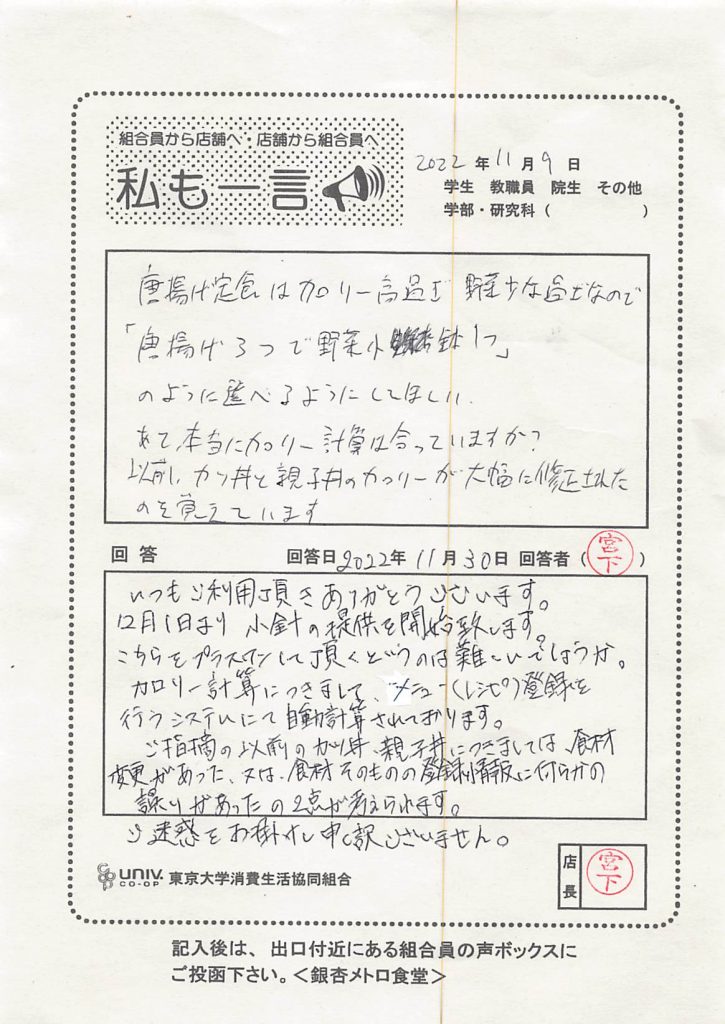 組合員から店舗へ・店舗から組合員へ
私も一言
2022年11月9日
学生 教職員 院生 その他
学部・研究科（ ）
唐揚げ定食はカロリー高過ぎ 野菜少な過ぎなので
「唐揚げ3つで野菜小鉢1つ」
のように選べるようにしてほしい.
あと、本当にカロリー計算は合っていますか?
以前、カツ丼と親子丼のカロリーが大幅に修正された
のを覚えています
回答 回答日2022年11月30日 回答者（宮下）
いつもご利用頂きありがとうございます。
12月1日より 小鉢の提供を開始致します。
こちらをプラスワンして頂くというのは難しいでしょうか。
カロリー計算につきまして、メニュー（レシピ）登録を
行うシステムにて自動計算されております。
ご指摘の以前のカツ丼、親子丼につきましては、食材
変更があった、又は、食材そのものの登録情報に何らかの
誤りがあったの2点が考えられます。
ご迷惑をお掛けし申し訳ございません。
UNIV. CO-OP 東京大学消費生活協同組合
店長 宮下
記入後は、出口付近にある組合員の声ボックスに
ご投函下さい。＜銀杏メトロ食堂＞